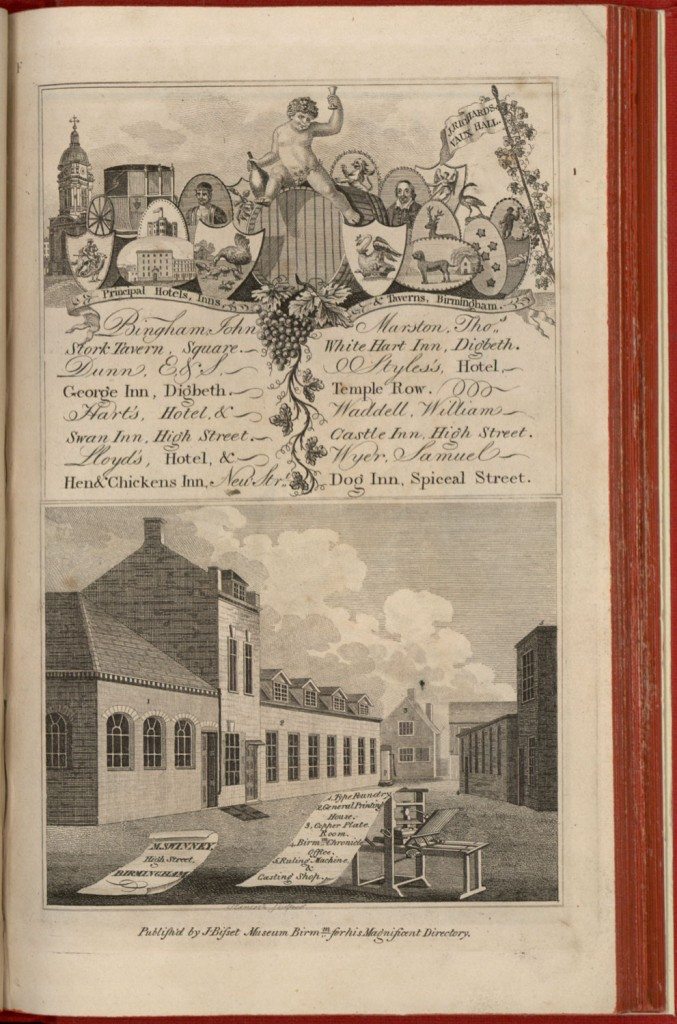 J. RICHARDS.
VAUX HALL.
Principal Hotels, Inns, & Taverns, Birmingham.
Bingham, John
Stork Tavern, Square.
Dunn, E & S
George Inn, Digbeth.
Hart's, Hotel, &
Swan Inn, High Street.
Lloyd's, Hotel, &
Hen & Chickens Inn, New Strt.
Marston, Thos.
White Hart Inn, Digbeth.
Styles's, Hotel,
Temple Row.
Waddell, William
Castle Inn, High Street.
Wyer, Samuel
Dog Inn, Spiceal Street.
M. SWINNEY,
High Street,
BIRMINGHAM
1. Type Foundry
2. General Printing
House.
3. Copper Plate
Room.
4. Birmm. Chronicle
Office.
5. Ruling Machine
&
Casting Shop.
Publish'd by J. Bisset Museum Birmm. for his Magnificent Directory.